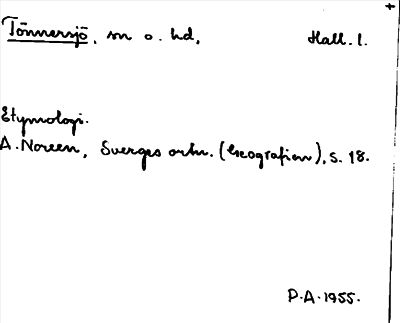 Tönnersjö, sn o. hd, Hall. l.
Etymologi.
A. Noreen, Sverges ortn. (Geografien), s. 18.
P.A. 1955.